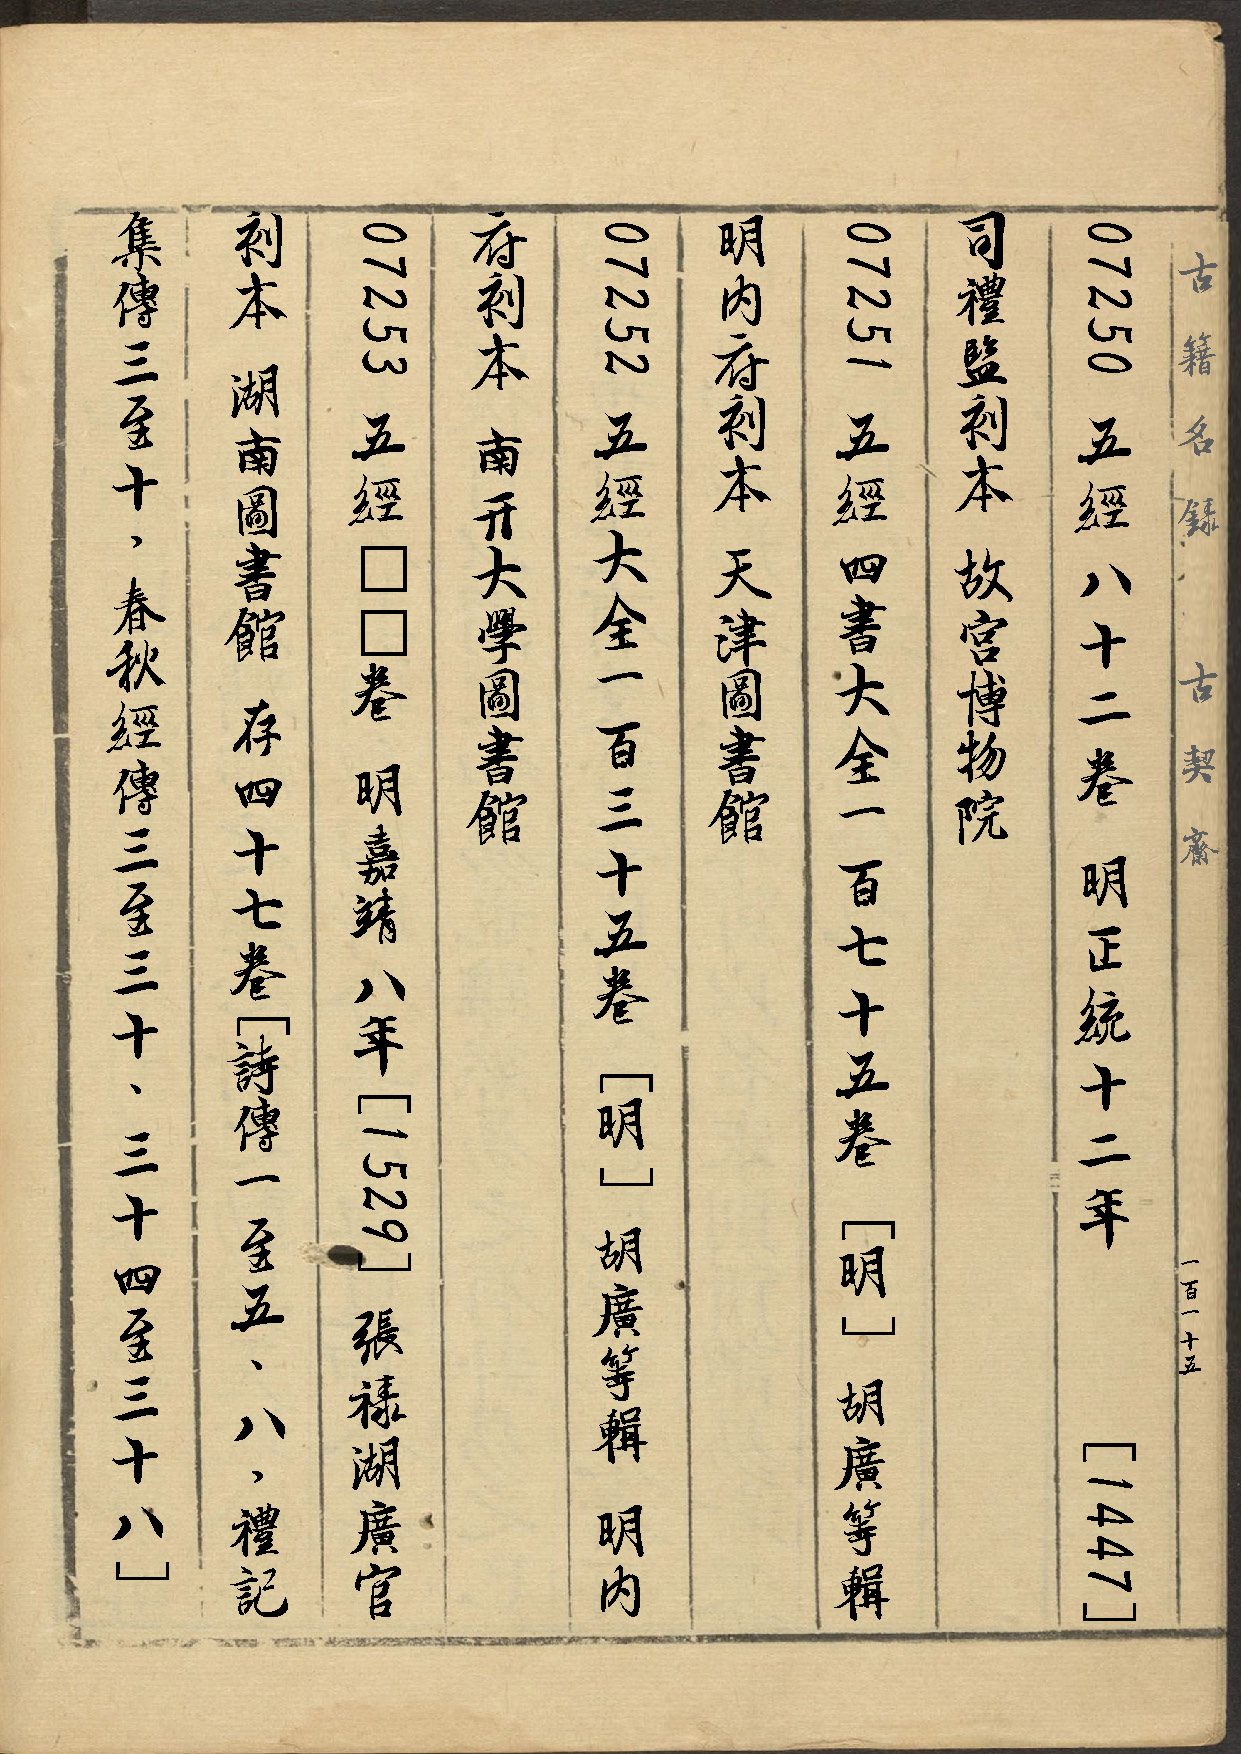 古籍名録 古契齋
一百一十五
07250 五經八十二卷 明正統十二年 [1447]
司禮監刻本 故宮博物院
07251 五經四書大全一百七十五卷 [明] 胡廣等輯
明内府刻本 天津圖書館
07252 五經大全一百三十五卷 [明] 胡廣等輯 明内
府刻本 南开大學圖書館
07253 五經□□卷 明嘉靖八年[1529] 張祿湖廣官
刻本 湖南圖書館 存四十七卷[詩傳一至五、八，禮記
集傳三至十，春秋經傳三至三十、三十四至三十八]